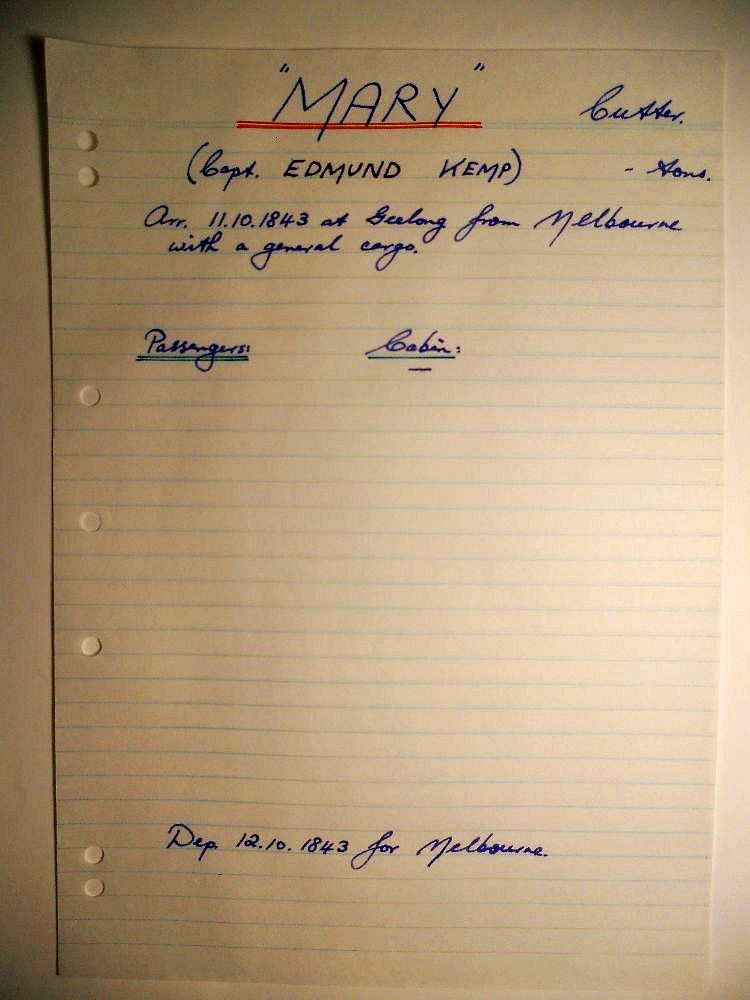 "MARY"
Cutter.
(Capt. EDMUND KEMP)
- tons.
Arr. 11.10.1843 at Geelong from Melbourne
with a general cargo.
Passengers:
Cabin:
—
Dep. 12.10.1843 for Melbourne.